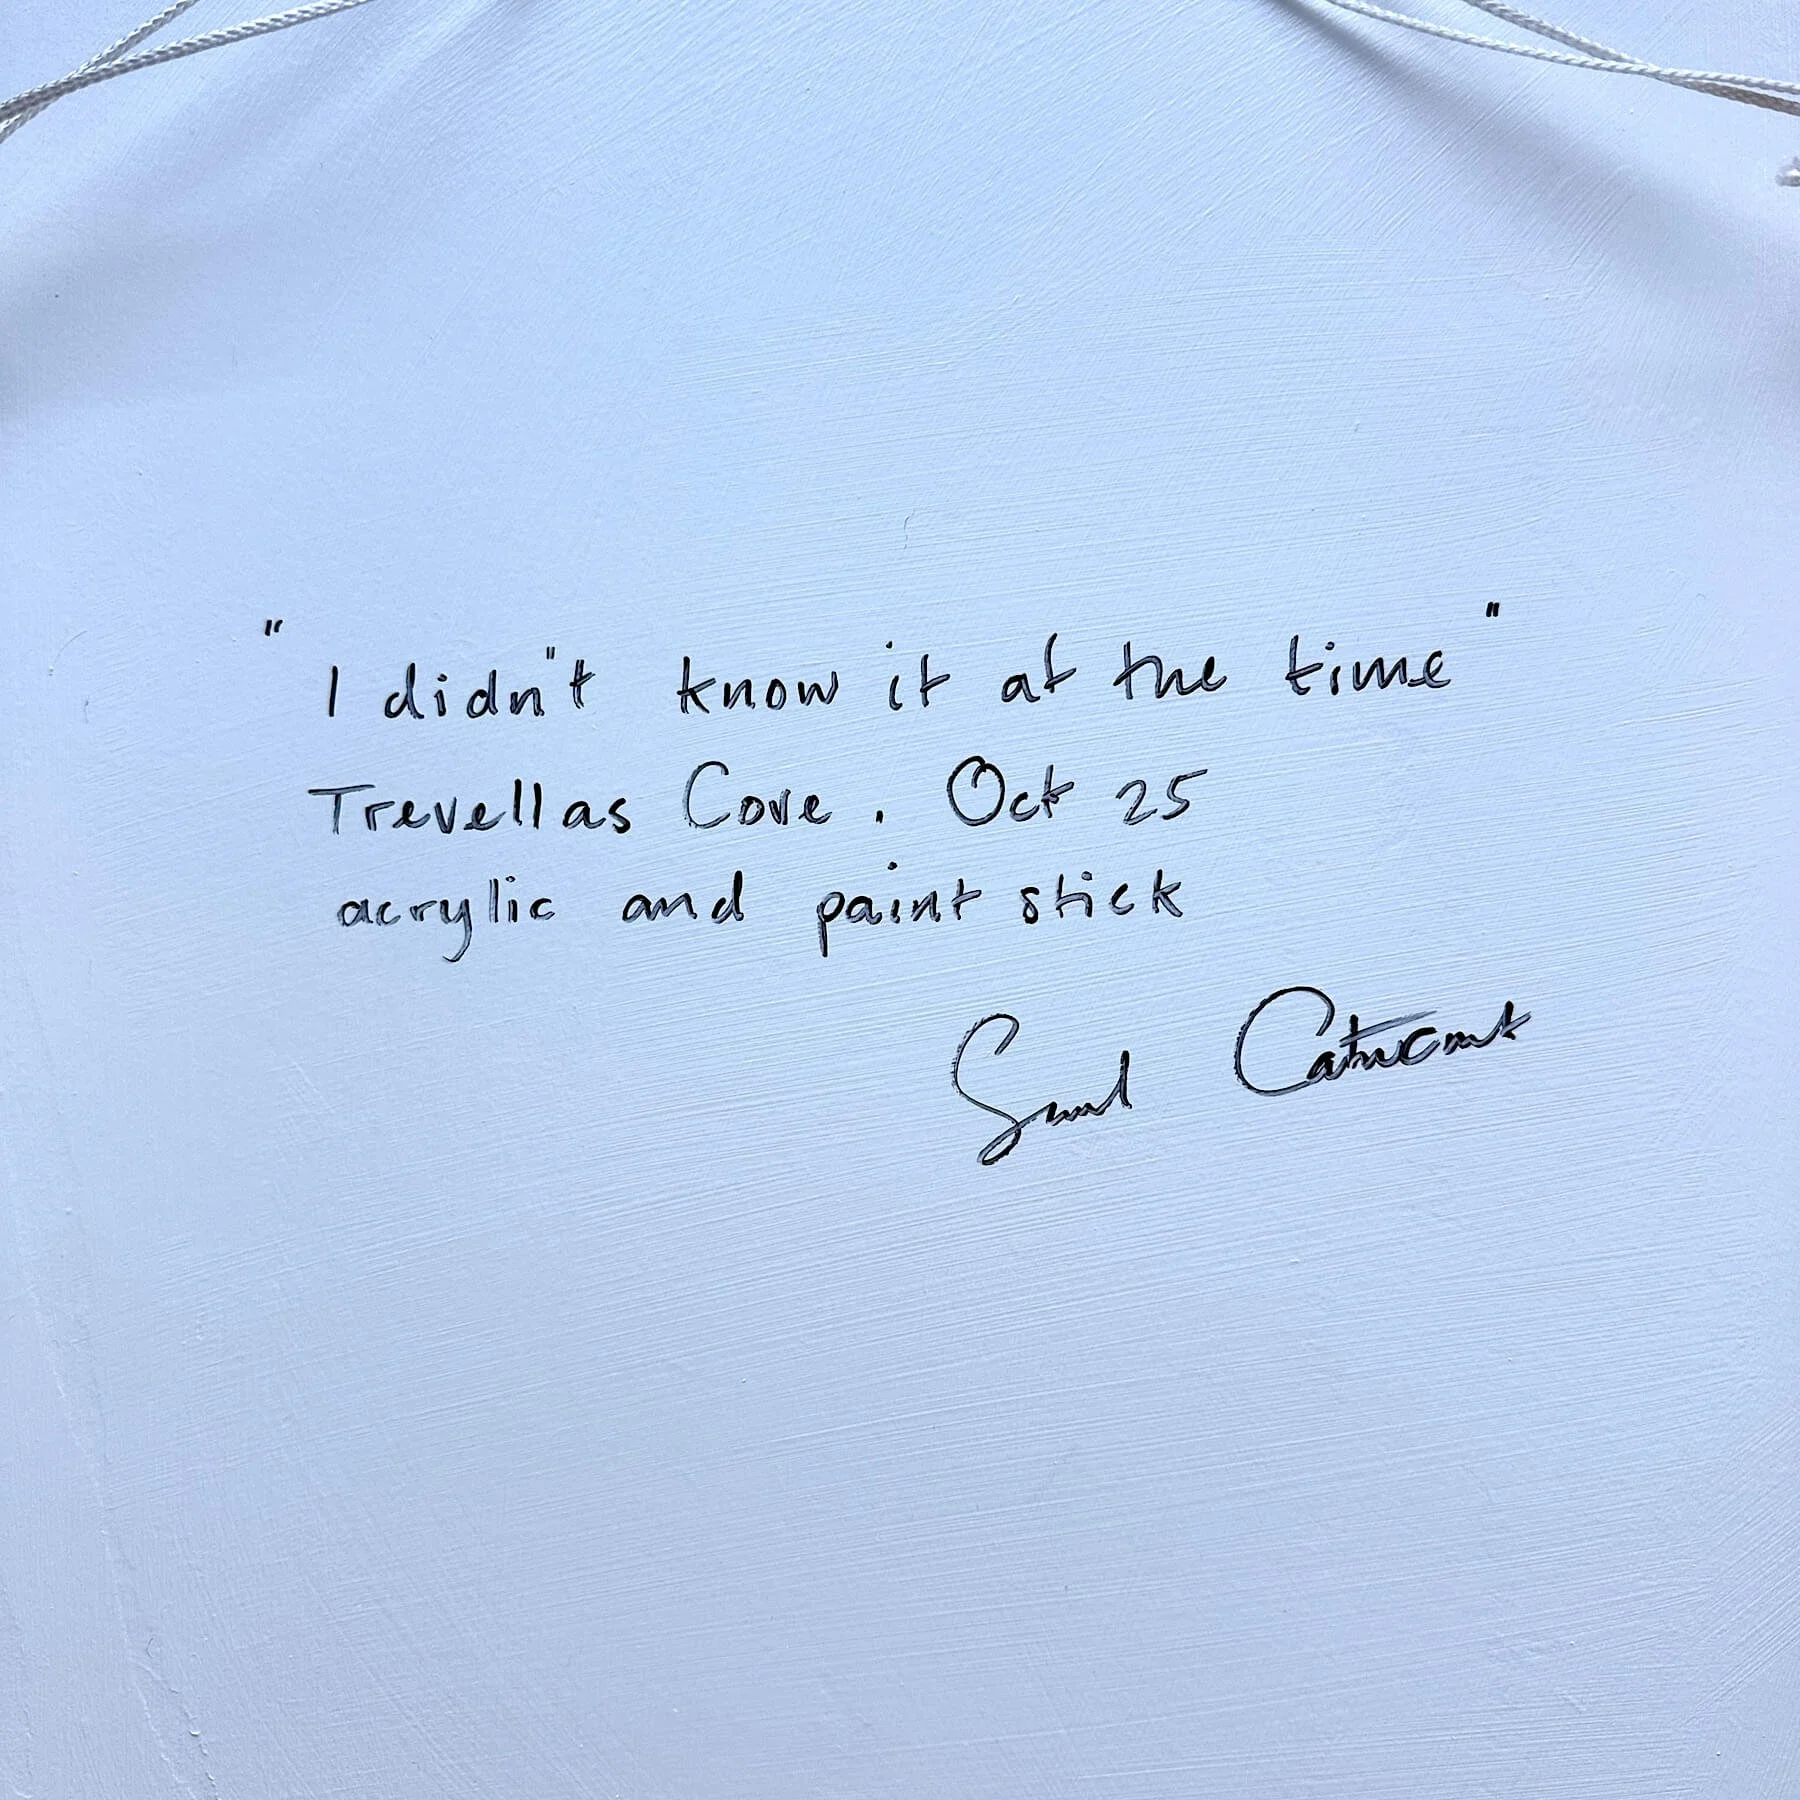 "I didn't know it at the time"
Trevellas Cove. Oct 25
acrylic and paint stick